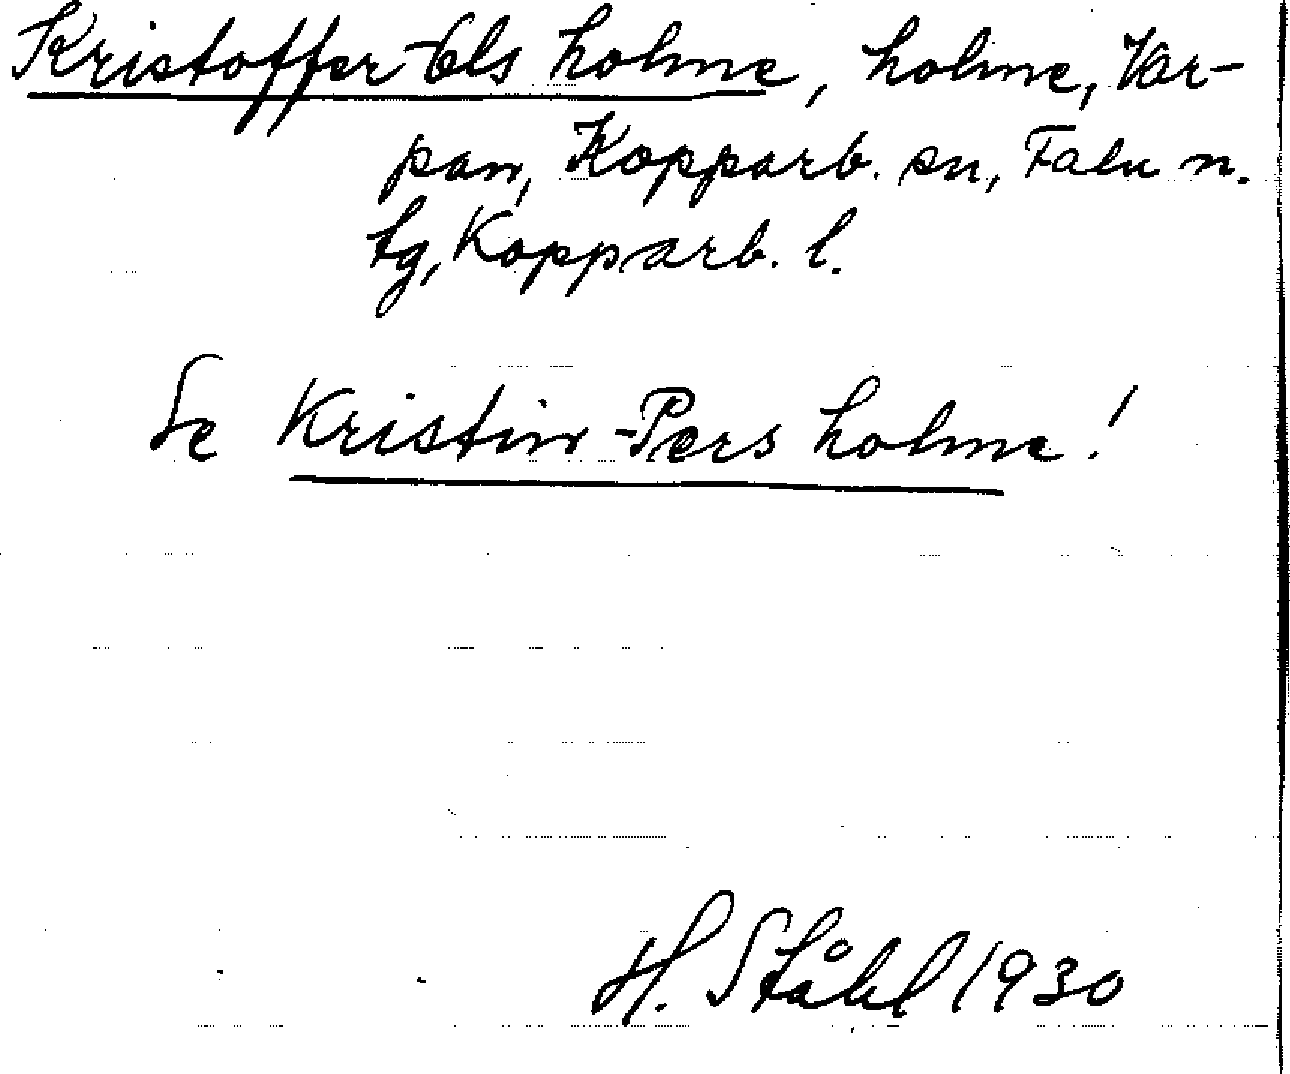 Kristoffer-Ols holme, holme, Var-
pan, Kopparb. sn, Falu n.
tg, Kopparb. l.
Se Kristin-Pers holme!
H. Ståhl 1930